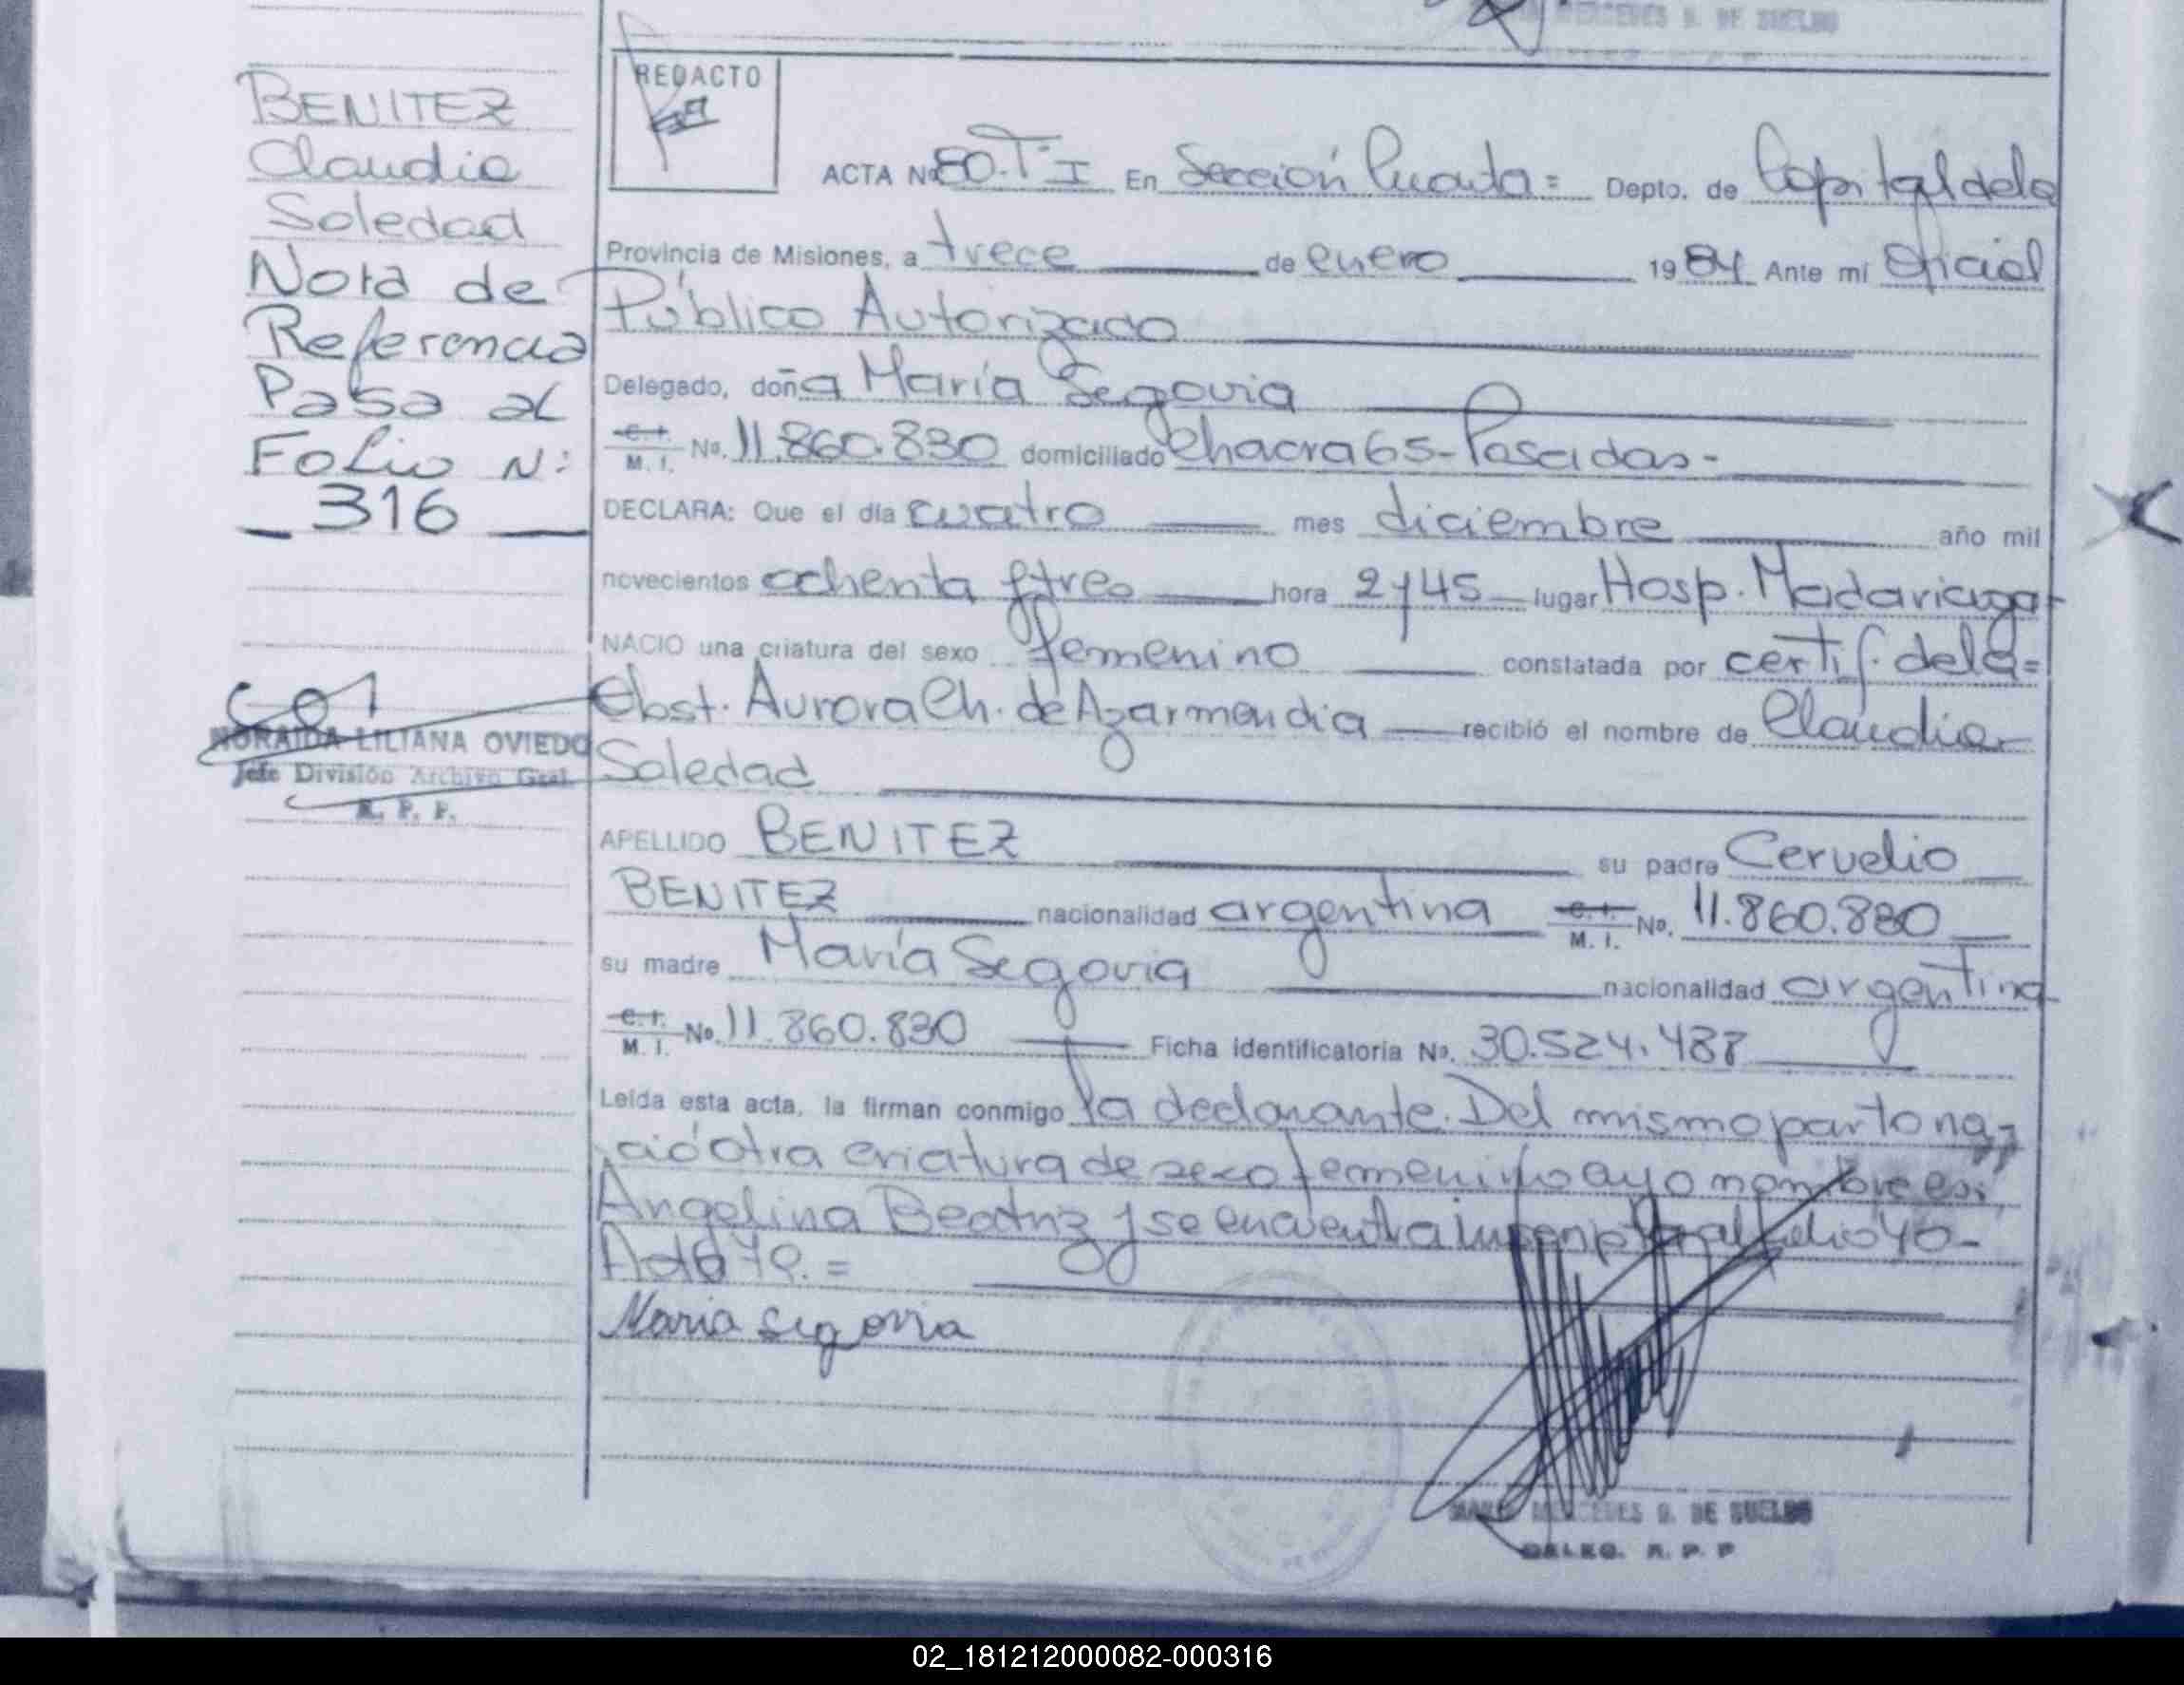 MERCEDES D. DE SUELDO
REDACTO
BENITEZ
Claudia
Soledad
Nota de
Referencia
Pasa al
Folio N:
316
NORAIDA LILIANA OVIEDO
Jefe División Archivo Gral.
R. P. P.
ACTA Nº 80. Tº I En Sección Cuarta = Depto. de Capital de la
Provincia de Misiones, a trece de enero 1984 Ante mí Oficial
Público Autorizado
Delegado, doña María Segovia
C.I. M. I. No. 11.860.830 domiciliado Chacra 65-Posadas-
DECLARA: Que el día cuatro mes diciembre año mil
novecientos ochenta y tres hora 2y45 lugar Hosp. Madariaga-
NACIO una criatura del sexo femenino constatada por certif. de la=
Obst. Aurora Ch. de Azarmendia recibió el nombre de Claudia-
Soledad
APELLIDO BENITEZ su padre Cervelio
BENITEZ nacionalidad argentina C.I. M. I. No. 11.860.880
su madre María Segovia nacionalidad argentina
C.I. M. I. No. 11.860.830 Ficha Identificatoria No. 30.524.487
Leída esta acta, la firman conmigo la declarante. Del mismo parto na-
ció otra criatura de sexo femenino cuyo nombre es:
Angelina Beatriz y se encuentra inscripta al folio 40-
Acta 79. =
Maria Segovia
MERCEDES D. DE SUELDO
R. P. P
02_181212000082-000316